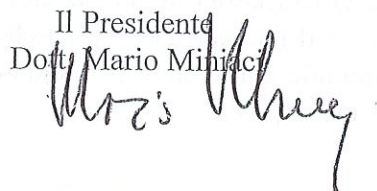 Il Presidente
Dott. Mario Miniaci